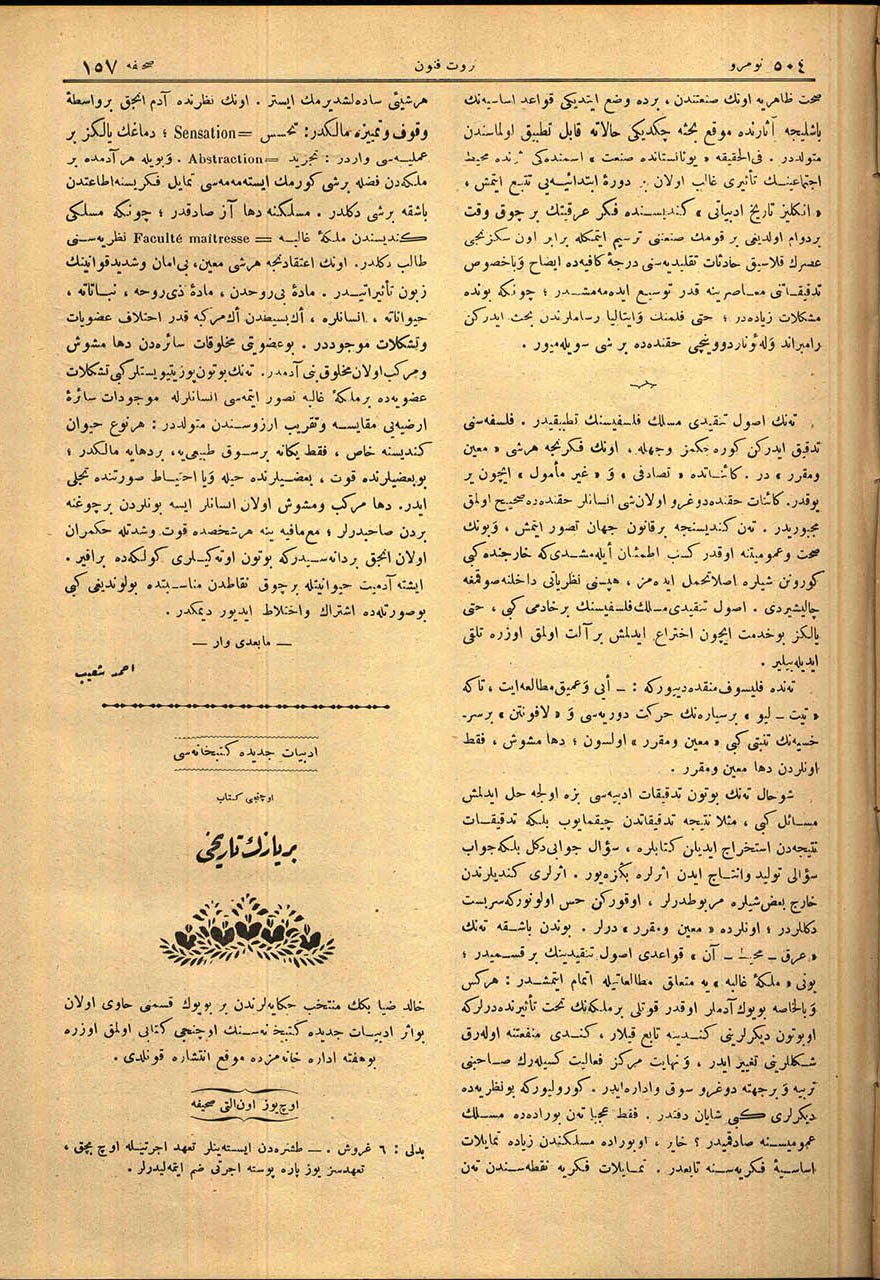 ٥٠٤ نومرو
ثروت فنون
صحیفه ١٥٧
صحت ظاهریه اونك صنعتندن ، برده وضع ایتدیكی قواعد اساسیه‌نك
باشلیجه آثارنده موقع بحثه چكدیكی حالاته قابل تطبیق اولماسندن
متولددر . فی‌الحقیقه « یونانستانده صنعت » اسمنده‌كی اثرنده محیط
اجتماعینك تأثیری غالب اولان بر دورۀ ابتدائیه‌یی تتبع ایتمش ،
« انكلیز تاریخ ادبیاتی » كندیسنده فكر عرقیتك بر چوق وقت
بردوام اولدیغی بر قومك صنعتنی ترسیم ایتمكله برابر اون سكزنجی
عصرك قلاسیق حادثات تقلیدیه‌سنی درجۀ كافیه‌ده ایضاح و باخصوص
تدقیقاتنی معاصرینه قدر توسیع ایده‌مه‌مشدر ؛ چونكه بونده
مشكلات زیاده‌در ؛ حتی فلمنك و ایتالیا رساملرندن بحث ایدركن
رامبراند و له‌ئوناردووینچی حقنده‌ده بر شی سویله‌میور .
ته‌نك اصول تنقیدی مسلك فلسفیسنك تطبیقیدر . فلسفه‌سنی
تدقیق ایدركن كوره‌جكمز وجهله ، اونك فكرنجه هرشی « معین
ومقرر » در . كائناتده « تصادفی » و « غیر مأمول » ایچون یر
یوقدر. كائنات حقنده دوغرو اولان شی انسانلر حقنده‌ده صحیح اولمق
مجبوریدر . ته‌ن كندیسنجه برقانون جهان تصور ایتمش ، وبونك
صحت وعمومیتنه اوقدر كسب اطمئنان ایله‌مشدی كه خارجنده كبی
كورونن شیلره اصلا تحمل ایده‌مز ، هپسنی نظریاتی داخلنه صوقمغه
چالیشیردی . اصول تنقیدی مسلك فلسفیسنك بر خادمی كبی ، حتی
یالكز بو خدمت ایچون اختراع ایدلمش بر آلت اولمق اوزره تلقی
ایدیله‌بیلیر .
ته‌نده فلیسوف منقده دییوركه : ــ ادبی و عمیق مطالعه ایت ، تا كه
« تیت ــ لیو » بر سیاره‌نك حركت دوریه‌سی و « لافونتن » بر سر-
خسیه‌نك تنبتی كبی « معین ومقرر » اولسون ؛ دها مشوش ، فقط
اونلردن دها معین ومقرر .
شو حال ته‌نك بوتون تدقیقات ادبیه‌سی بزه اولجه حل ایدلمش
مسائل كبی ، مثلا نتیجه تدقیقاتدن چیقمایوب بلكه تدقیقات
نتیجه‌دن استخراج ایدیلن كتابلره ، سؤال جوابی دكل بلكه جواب
سؤالی تولید وانتاج ایدن اثرلره بكزه‌یور . اثرلری كندیلرندن
خارج بعض شیلره مربوطدرلر ، اوقوركن حس اولونوركه سربست
دكلاردر ؛ اونلرده « معین ومقرر » درلر . بوندن باشقه ته‌نك
« عرق ــ محیط ــ آن » قواعدی اصول تنقیدینك بر قسمیدر ؛
بونی « ملكۀ غالبه » یه متعلق مطالعاتیله اتمام ایتمشدر : هركس
و بالخاصه بویوك آدملر اوقدر قوتلی بر ملكه‌نك تحت تأثیرنده‌درلركه
او بوتون دیكرلرینی كندینه تابع قیلار ، كندی منفعتنه اوله‌رق
شكللرینی تغییر ایدر ، و نهایت مركز فعالیت كسیله‌رك صاحبنی
تربیه و بر جهته دوغرو سوق واداره ایدر . كورولیوركه بو نظریه‌ده
دیكرلری كبی شایان دقتدر . فقط عجبا ته‌ن بوراده‌ده مسلك
عمومیسنه صادقمیدر ؟ خایر ، او بوراده مسلكندن زیاده تمایلات
اساسیۀ فكریه‌سنه تابعدر . تمایلات فكریه نقطه‌سندن ته‌ن
هر شیئی ساده‌لشدیرمك ایستر . اونك نظرنده آدم انجق بر واسطۀ
وقوف وتمییزه مالكدر: تحسس =Sensation ؛ دماغك یالكز بر
عملیه‌سی واردر : تجرید =Abstraction . وبویله هر آدمده بر
ملكه‌دن فضله بر شی كورمك ایسته‌مه‌مه‌سی تمایل فكریسنه اطاعتدن
باشقه بر شی دكلدر . مسلكنه دها آز صادقدر ؛ چونكه مسلكی
كندیسندن ملكۀ غالبه = Faculté maîtresse نظریه‌سنی
طالب دكلدر. اونك اعتقادنجه هر شی معین، بی‌امان و شدید قوانینك
زبون تأثیراتیدر . مادۀ بی‌روحدن ، مادۀ ذی‌روحه ، نباتاته ،
حیواناته ، انسانلره ، اك بسیطدن اك مركبه قدر اختلاف عضویات
وتشكلات موجوددر . بو عضویتی مخلوقات سائره‌دن دها مشوش
ومركب اولان مخلوق بنی آدمدر. ته‌نك بوتون پوزیتیویستلر كبی تشكلات
عضویه‌ده بر ملكۀ غالبه تصور ایتمه‌سی انسانلرله موجودات سائرۀ
ارضیه‌یی مقایسه وتقریب آرزوسندن متولددر : هر نوع حیوان
كندیسنه خاص ، فقط یكانه بر سوق طبیعی‌یه ، بر دهایه مالكدر ؛
بو بعضیلرنده قوت ، بعضیلرنده حیله ویا احتیاط صورتنده تجلی
ایدر. دها مركب ومشوش اولان انسانلر ایسه بونلردن بر چوغنه
بردن صاحبدرلر ؛ مع‌مافیه ینه هر شخصده قوت وشدتله حكمران
اولان انجق بر دانه‌سیدركه بوتون اوته‌كیلری كولكه‌ده براقیر .
ایشته آدمیت حیوانیتله بر چوق نقاطدن مناسبتده بولوندیغی كبی
بو صورتله‌ده اشتراك واختلاط ایدیور دیمكدر .
ــ مابعدی وار ــ
احمد شعیب
ادبیات جدیده كتبخانه‌سی
اوچنجی كتاب
بر یازك تاریخی
خالد ضیا بكك منتخب حكایه‌لرندن بر بویوك قسمنی حاوی اولان
بو اثر ادبیات جدیده كتبخانه‌سنك اوچنجی كتابی اولمق اوزره
بو هفته اداره خانه‌مزده موقع انتشاره قونلدی .
اوچ یوز اون التی صحیفه
بدلی : ٦ غروش . ــ طشره‌دن ایسته‌ینلر تعهد اجرتیله اوچ بچق ،
تعهدسز یوز پاره پوسته اجرتی ضم ایتمه‌لیدرلر .